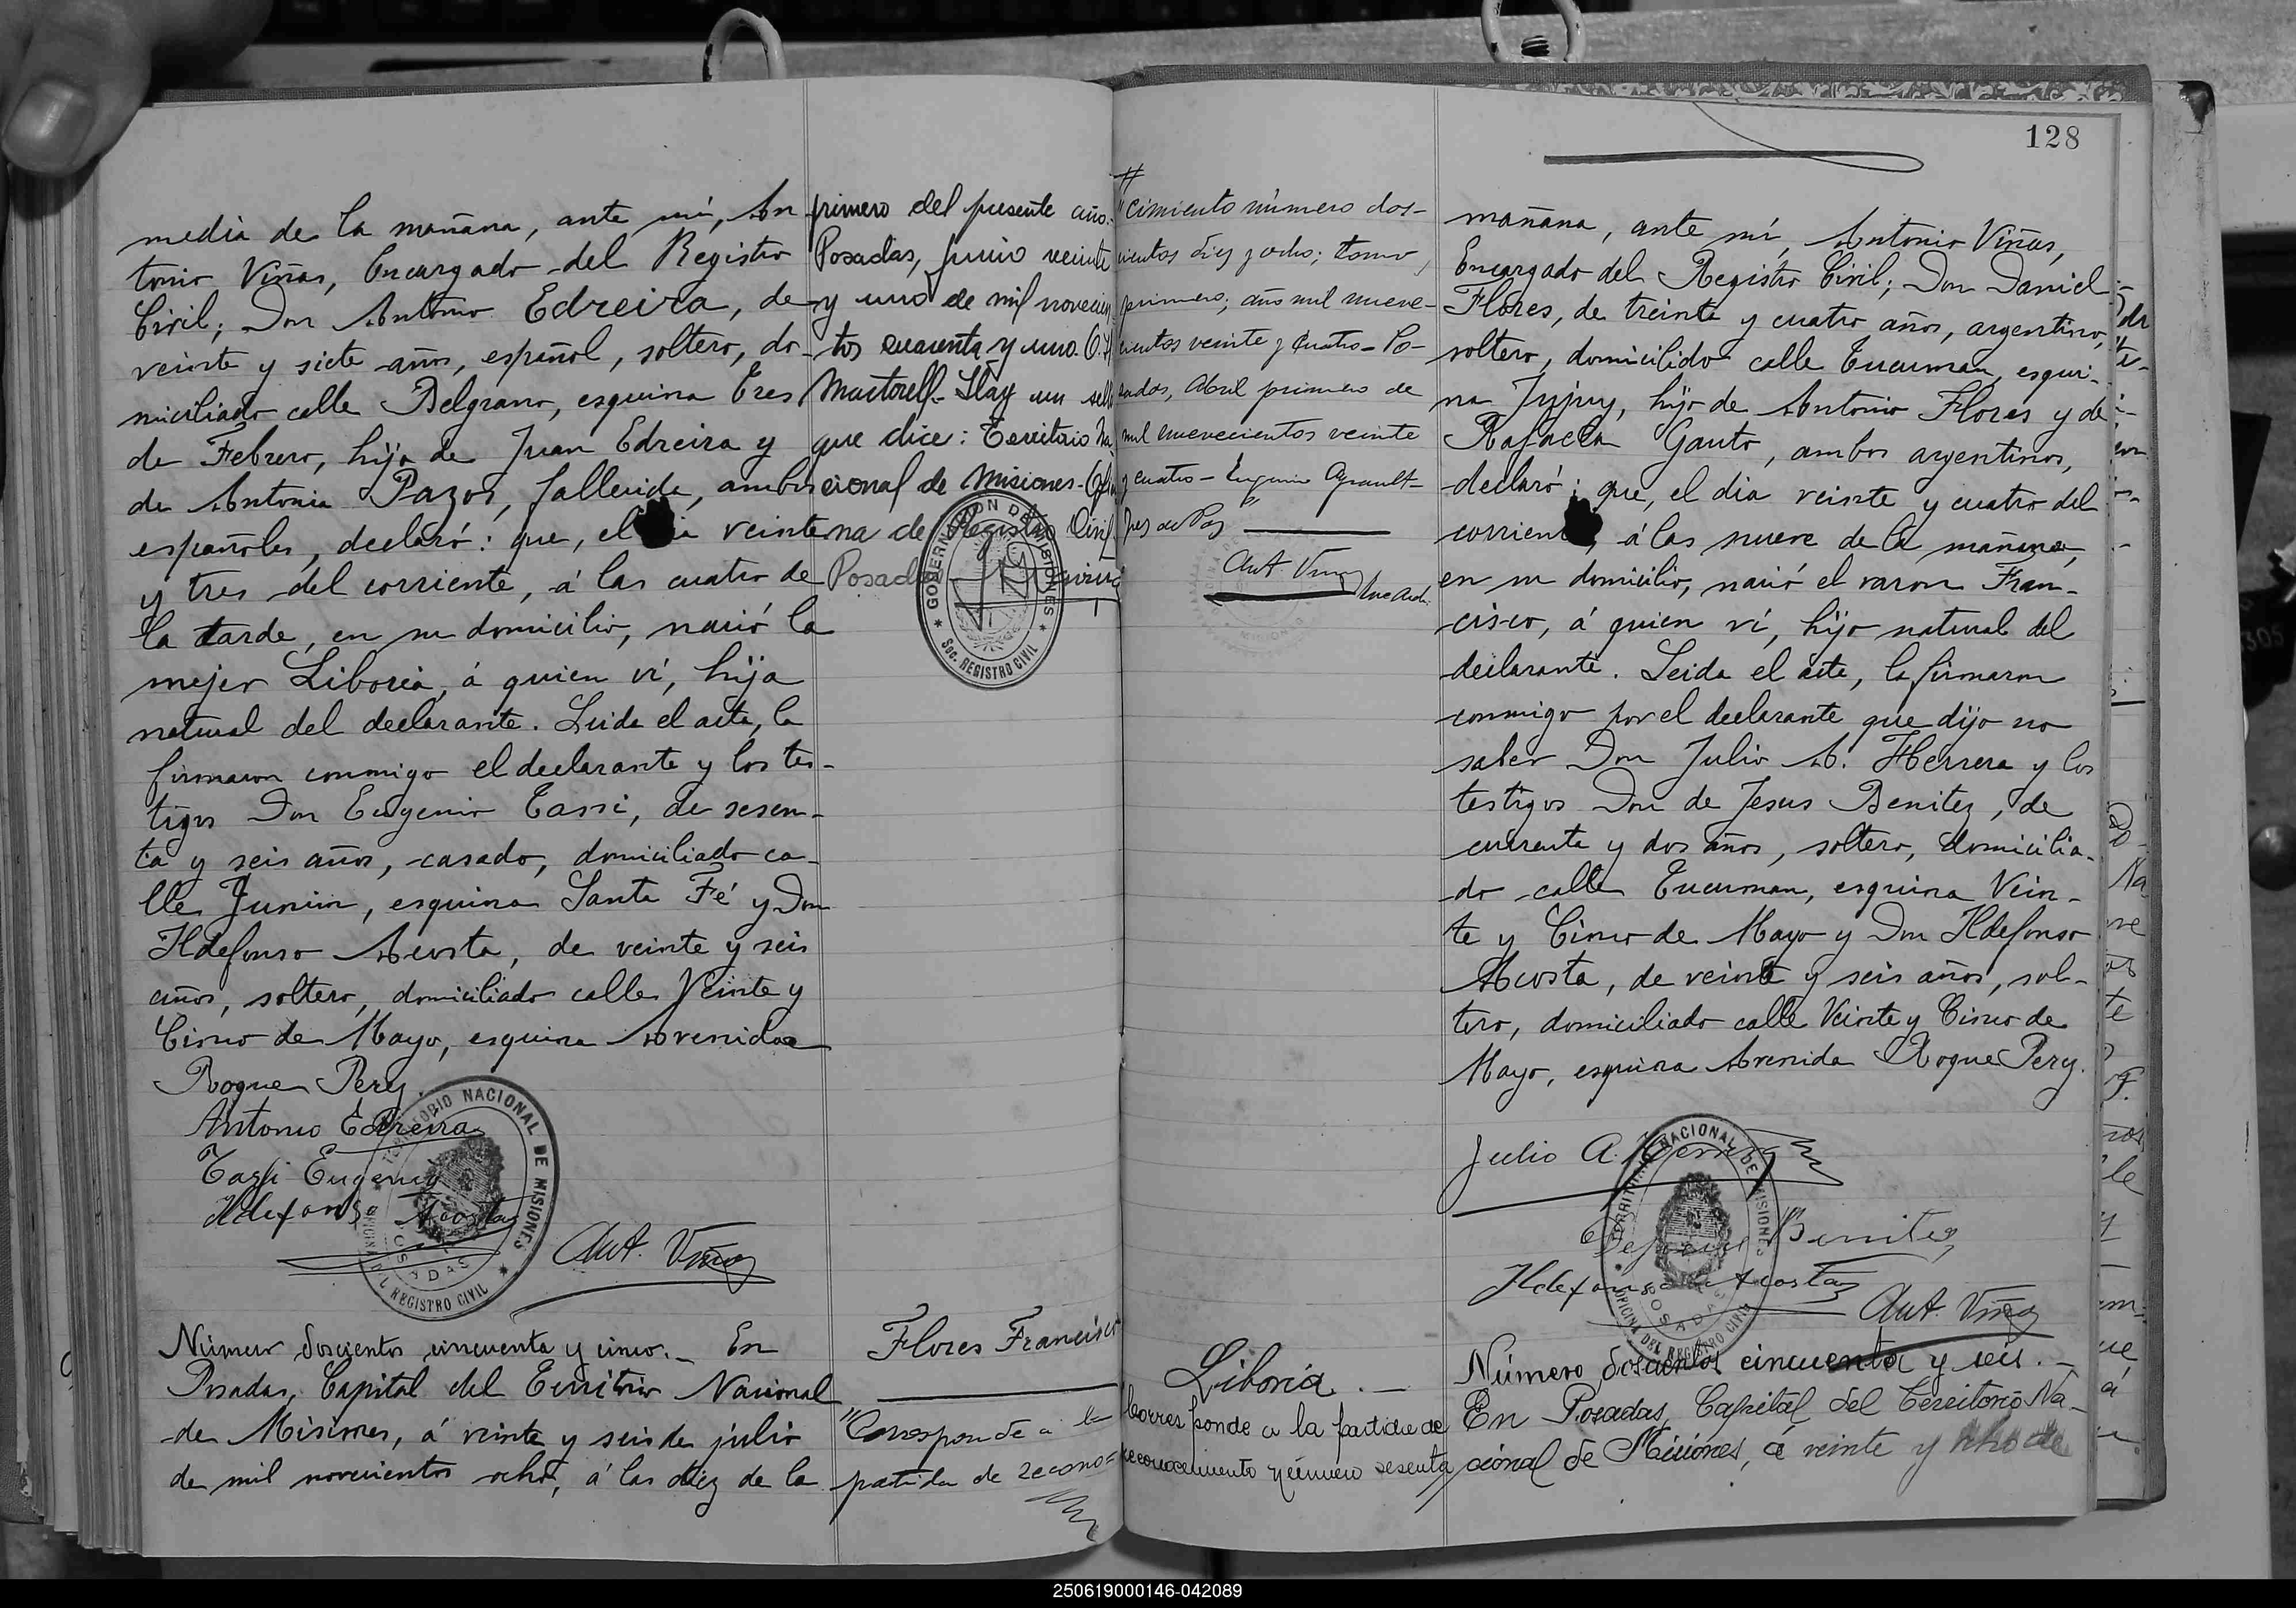 media de la mañana, ante mí, An
tonio Viñas, Encargado del Registro
Civil; Don Antonio Edreira, de
veinte y siete años, español, soltero, do-
miciliado calle Belgrano, esquina Tres
de Febrero, hijo de Juan Edreira y
de Antonia Pazos, fallecida, ambos
españoles, declaró: que, el veinte
y tres del corriente, á las cuatro de
la tarde, en su domicilio, nació la
mejer Liboria, á quien ví, hija
natural del declarante. Leida el acta, la
firmaron conmigo el declarante y los tes-
tigos Don Eugenio Tassi, de sesen-
ta y seis años, casado, domiciliado ca-
lle Junin, esquina Santa Fé y Don
Ildefonso Acosta, de veinte y seis
años, soltero, domiciliado calle Veinte y
Cinco de Mayo, esquina Avenida
Roque Perez.
Antonio Edreira
Tassi Eugenio
Ildefonso Acosta
Ant. Viñas
TERRITORIO NACIONAL DE MISIONES
OFICINA DEL REGISTRO CIVIL
POSADAS
Número doscientos cincuenta y cinco.- En
Posadas, Capital del Territorio Nacional
de Misiones, á veinte y seis de julio
de mil novecientos ocho, á las diez de la
primero del presente año.
Posadas, Junio veinte
y uno de mil novecien
tos cuarenta y uno.
Martorell- Hay un sello
que dice: Territorio Na
cional de Misiones- Ofi
na de Registro Civil
Posadas
GOBERNACION DE MISIONES
SEC. REGISTRO CIVIL
Flores Francisco
"Corresponde a la
partida de recono=
"cimiento número dos-
cientos diez y ocho; tomo
primero; año mil nueve-
cientos veinte y cuatro- Po-
sadas, Abril primero de
mil novecientos veinte
y cuatro- Eugenio
Juez de Paz
Ant. Viñas
Liboria.-
Corresponde a la partida de
reconocimiento número sesenta
128
mañana, ante mí, Antonio Viñas,
Encargado del Registro Civil; Don Daniel
Flores, de treinta y cuatro años, argentino,
soltero, domicilido calle Tucuman, esqui-
na Jujuy, hijo de Antonio Flores y de
Rafaela Gauto, ambos argentinos,
declaró: que, el dia veinte y cuatro del
corriente, á las nueve de la mañana,
en su domicilio, nació el varon Fran-
cisco, á quien ví, hijo natural del
declarante. Leida el acta, la firmaron
conmigo por el declarante que dijo no
saber Don Julio A. Herrera y los
testigos Don de Jesus Benitez, de
cuarenta y dos años, soltero, domicilia-
do calle Tucuman, esquina Vein-
te y Cinco de Mayo y Don Ildefonso
Acosta, de veinte y seis años, sol-
tero, domiciliado calle Veinte y Cinco de
Mayo, esquina Avenida Roque Perez.
Julio A. Herrera
De Jesus Benitez
Ildefonso Acosta
Ant. Viñas
TERRITORIO NACIONAL DE MISIONES
OFICINA DEL REGISTRO CIVIL
POSADAS
Número doscientos cincuenta y seis.-
En Posadas, Capital del Territorio Na-
cional de Misiones, á veinte y ocho de
250619000146-042089